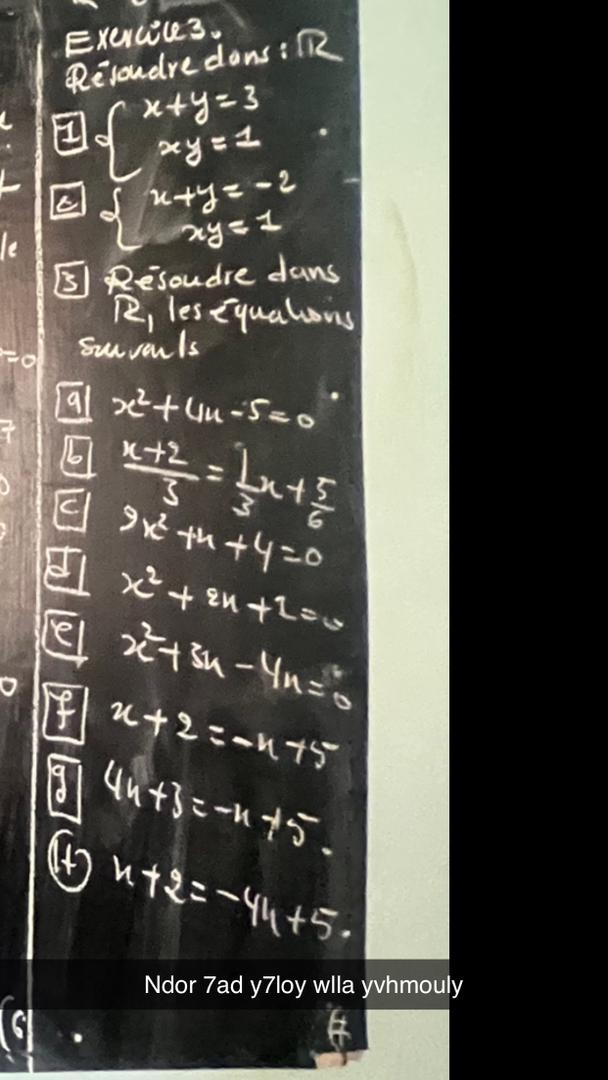 Exercice 3.
Résoudre dans : ℝ
1 { x+y=3
xy=1
2 { x+y=-2
xy=1
3 Résoudre dans
ℝ, les équations
suivants
a x²+4x-5=0
b (x+2)/3 = 1/3 x + 5/6
c 9x²+x+4=0
d x²+2x+1=0
e x²+3x-4x=0
f x+2=-x+5
g 4x+3=-x+5.
H x+2=-4x+5.
Ndor 7ad y7loy wlla yvhmouly